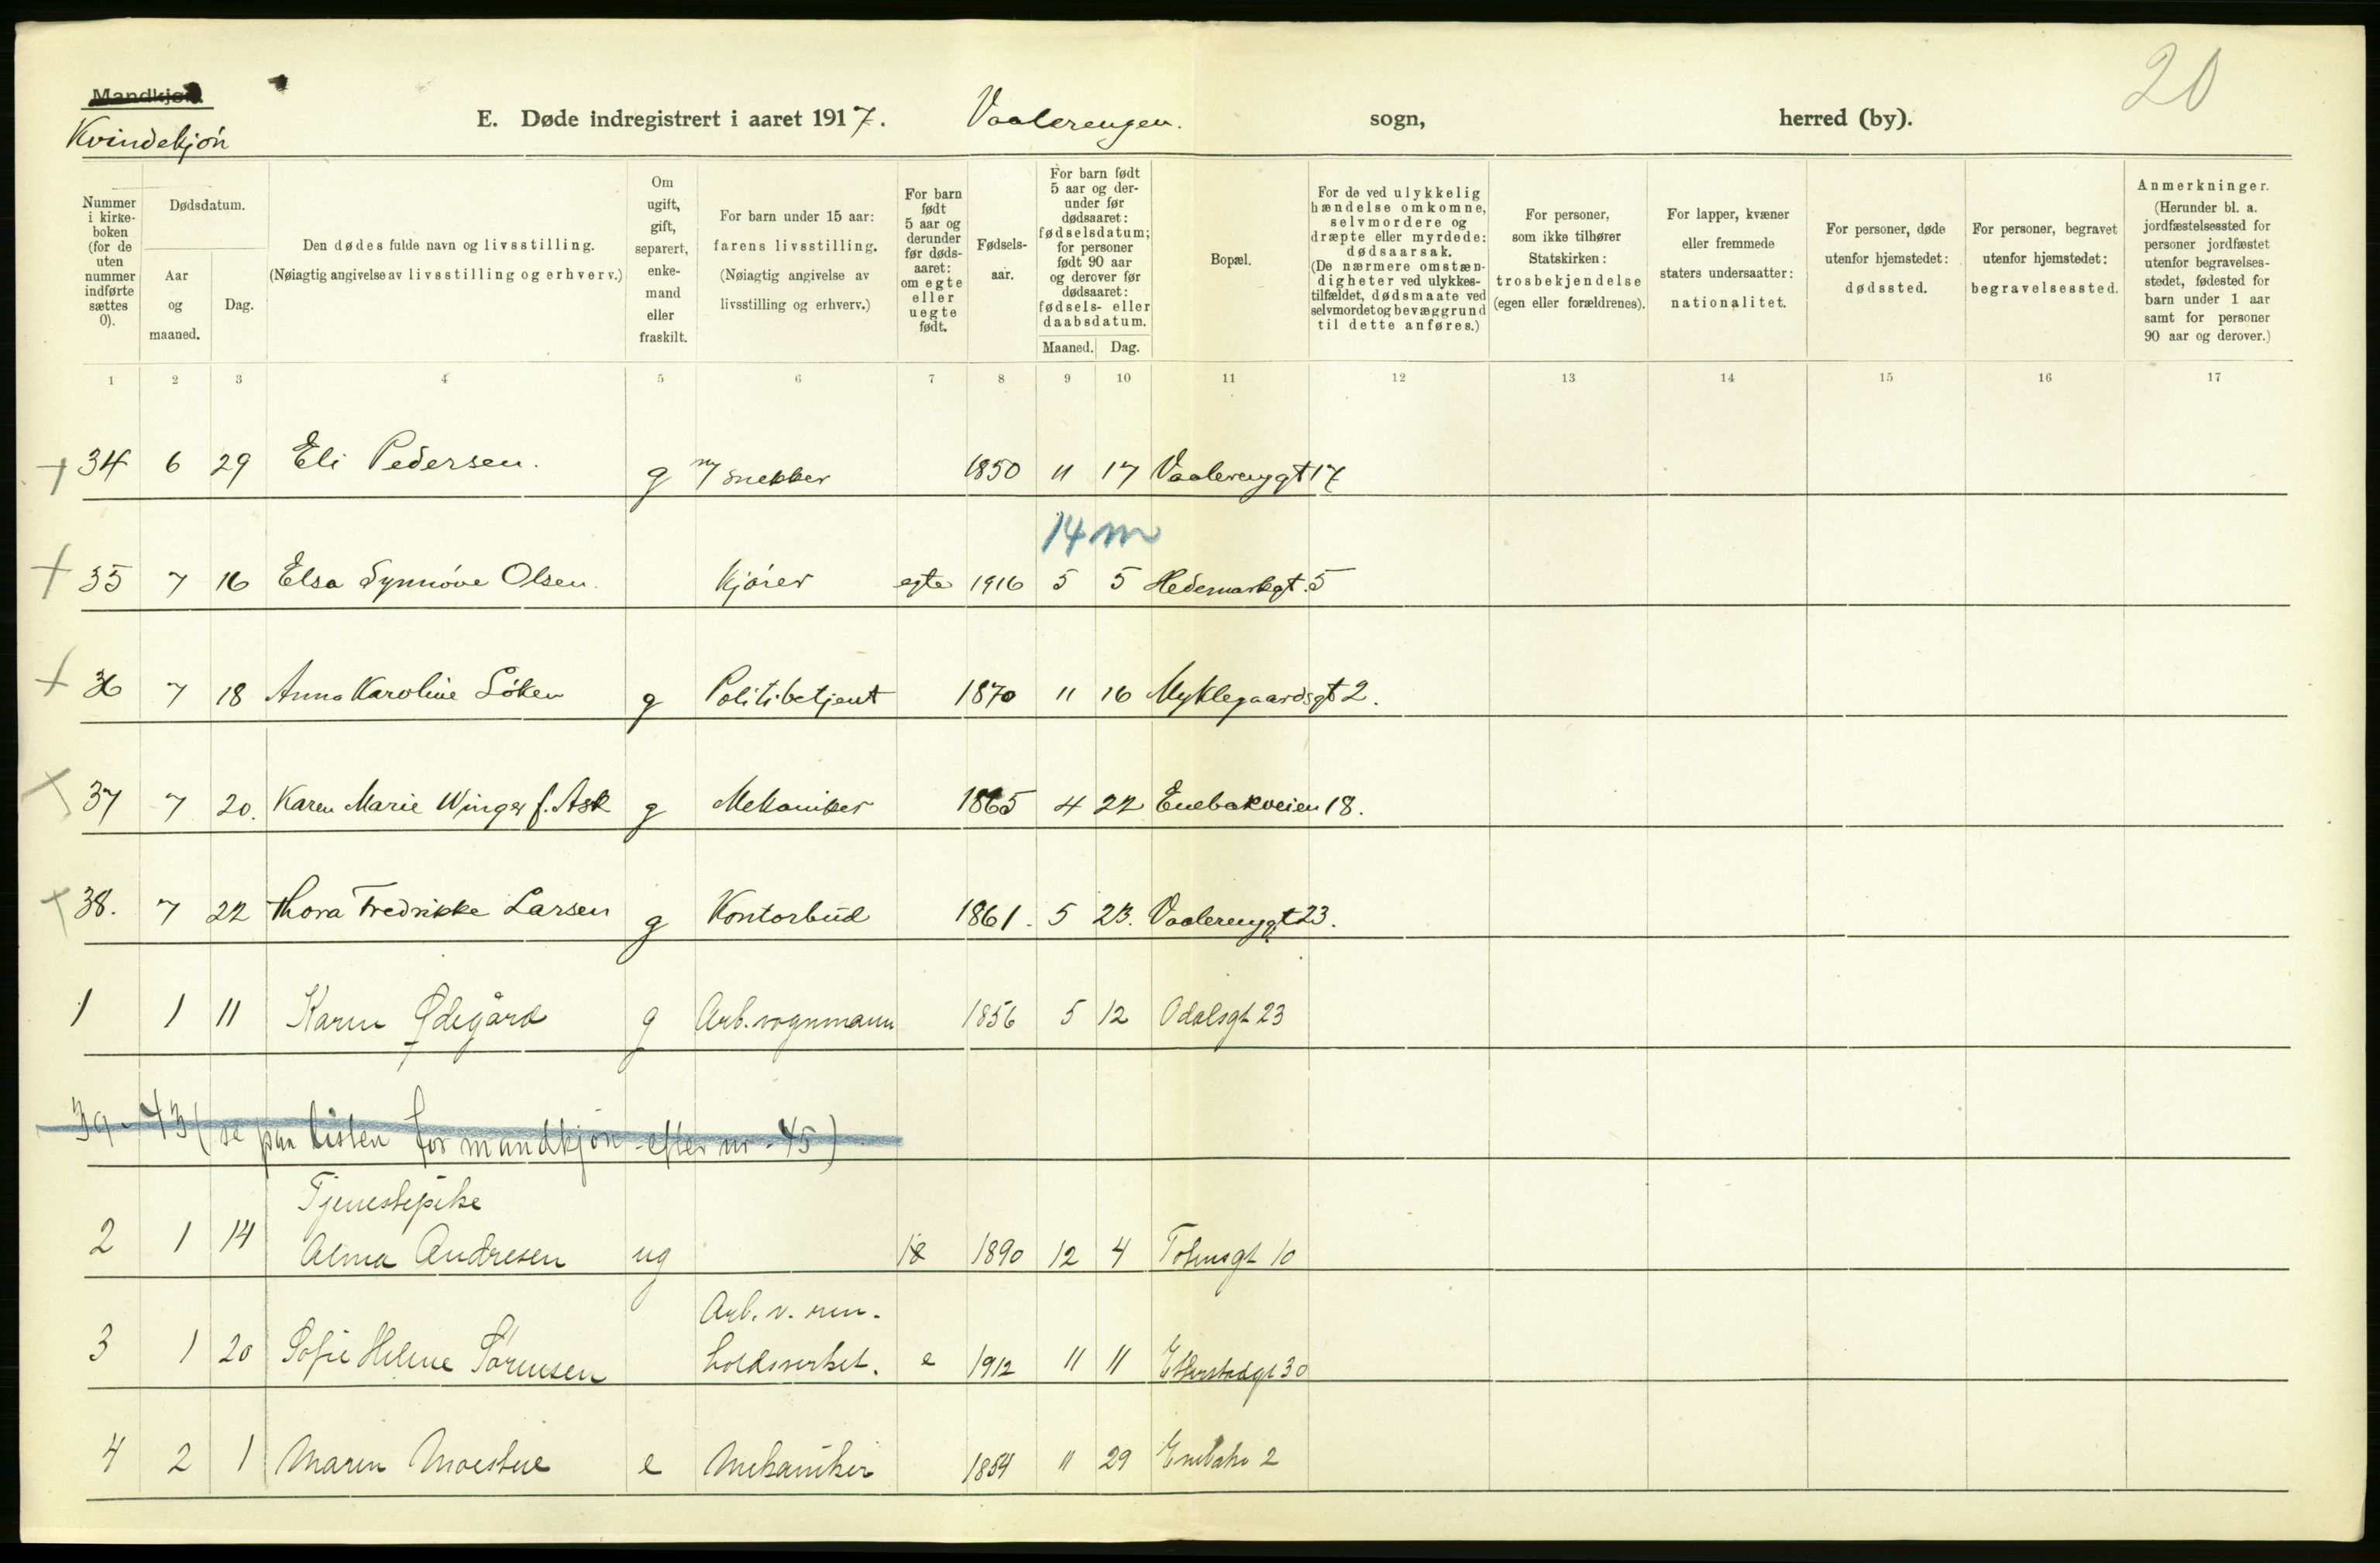 20
Mandkjøn.
Kvindekjøn
E. Døde indregistrert i aaret 1917. Vaalerengen. sogn, herred (by).
Nummer i kirkeboken (for de uten nummer indførte sættes 0).
Dødsdatum.
Aar og maaned.
Dag.
Den dødes fulde navn og livsstilling.
(Nøiagtig angivelse av livsstilling og erhverv.)
Om ugift, gift, separert, enkemand eller fraskilt.
For barn under 15 aar: farens livsstilling.
(Nøiagtig angivelse av livsstilling og erhverv.)
For barn født 5 aar og derunder før dødsaaret: om egte eller uegte født.
Fødselsaar.
For barn født 5 aar og derunder før dødsaaret: fødselsdatum; for personer født 90 aar og derover før dødsaaret: fødsels- eller daabsdatum.
Maaned. Dag.
Bopæl.
For de ved ulykkelig hændelse omkomne, selvmordere og dræpte eller myrdede: dødsaarsak.
(De nærmere omstændigheter ved ulykkestilfældet, dødsmaate ved selvmordet og bevæggrund til dette anføres.)
For personer, som ikke tilhører Statskirken: trosbekjendelse (egen eller forældrenes).
For lapper, kvæner eller fremmede staters undersaatter: nationalitet.
For personer, døde utenfor hjemstedet: dødssted.
For personer, begravet utenfor hjemstedet: begravelsessted.
Anmerkninger.
(Herunder bl. a. jordfæstelsessted for personer jordfæstet utenfor begravelsesstedet, fødested for barn under 1 aar samt for personer 90 aar og derover.)
1 2 3 4 5 6 7 8 9 10 11 12 13 14 15 16 17
+ 34 6 29 Eli Pedersen. g snekker 1850 11 17 Vaalerenggt 17
14 m
+ 35 7 16 Elsa Synnöve Olsen. Kjörer egte 1916 5 5 Hedemarkgt. 5
+ 36 7 18 Anna Karoline Löken g Politibetjent 1870 11 16 Myklegaardsgt 2.
+ 37 7 20. Karen Marie Winger f. Ask g Mekaniker 1865 4 22 Enebakveien 18.
+ 38. 7 22 Thora Fredrikke Larsen g Kontorbud 1861. 5 23. Vaalerenggt 23.
1 1 11 Karen Ødegård g Arb. vognmann 1856 5 12 Odalsgt 23
39-43 (se paa listen for mandkjøn efter nr. 45)
Tjenestepike
2 1 14 Alma Andresen ug 1890 12 4 10
Arb. v. ren-
3 1 20 Sofie Helene Sörensen holdsverket. e 1912 11 11 Etterstadgt 30
4 2 1 Maren Moestue e Mekaniker 1854 11 29 2